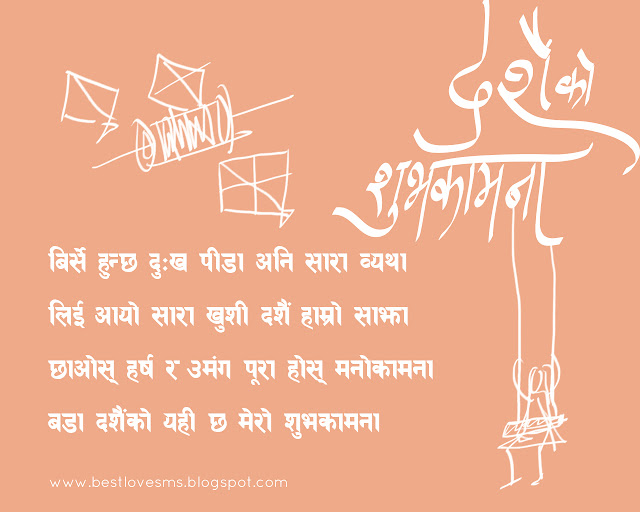 दशैंको
शुभकामना
बिर्से हुन्छ दुःख पीडा अनि सारा व्यथा
लिई आयो सारा खुशी दशैं हाम्रो साझा
छाओस् हर्ष र उमंग पूरा होस् मनोकामना
बडा दशैंको यही छ मेरो शुभकामना
www.bestlovesms.blogspot.com